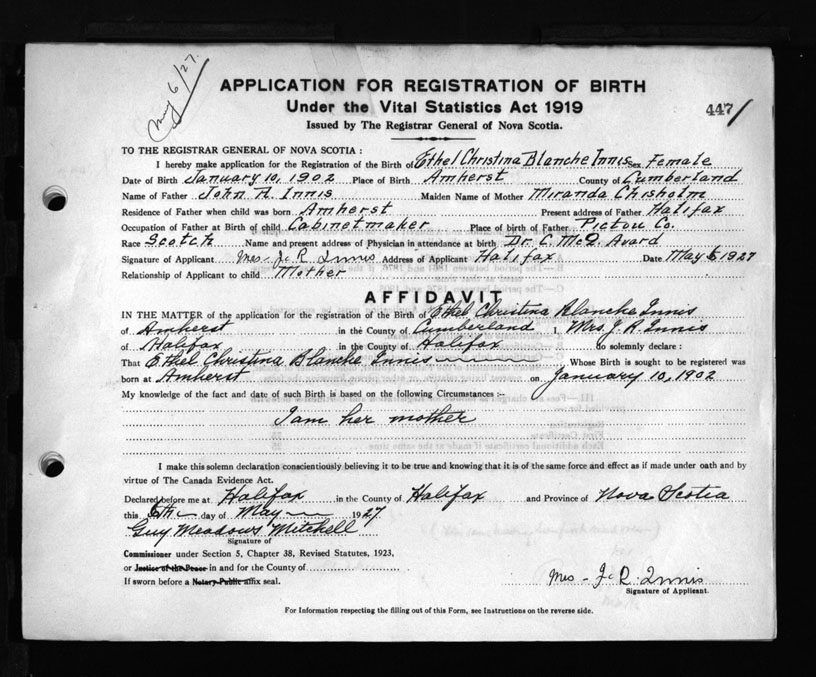 May 6/27.
APPLICATION FOR REGISTRATION OF BIRTH
Under the Vital Statistics Act 1919
447
Issued by The Registrar General of Nova Scotia.
TO THE REGISTRAR GENERAL OF NOVA SCOTIA :
I hereby make application for the Registration of the Birth of Ethel Christina Blanche Innis Sex Female
Date of Birth January 10, 1902 Place of Birth Amherst County of Cumberland
Name of Father John A. Innis Maiden Name of Mother Miranda Chisholm
Residence of Father when child was born Amherst Present address of Father Halifax
Occupation of Father at Birth of child Cabinetmaker Place of birth of Father Pictou Co.
Race Scotch Name and present address of Physician in attendance at birth Dr. C. McQ. Avard
Signature of Applicant Mrs - R Innis Address of Applicant Halifax Date May 6 1927
Relationship of Applicant to child Mother
AFFIDAVIT
IN THE MATTER of the application for the registration of the Birth of Ethel Christina Blanche Innis
of Amherst in the County of Cumberland I, Mrs. J. R. Innis
of Halifax in the County of Halifax do solemnly declare :
That Ethel Christina Blanche Innis Whose Birth is sought to be registered was
born at Amherst on January 10, 1902
My knowledge of the fact and date of such Birth is based on the following Circumstances :-
I am her mother
I make this solemn declaration conscientiously believing it to be true and knowing that it is of the same force and effect as if made under oath and by
virtue of The Canada Evidence Act.
Declared before me at Halifax in the County of Halifax and Province of Nova Scotia
this 6th day of May 1927
Guy Meadows Mitchell
Signature of
Commissioner under Section 5, Chapter 38, Revised Statutes, 1923,
or Justice of the Peace in and for the County of
If sworn before a Notary Public affix seal.
Mrs - R. Innis
Signature of Applicant.
For Information respecting the filling out of this Form, see Instructions on the reverse side.